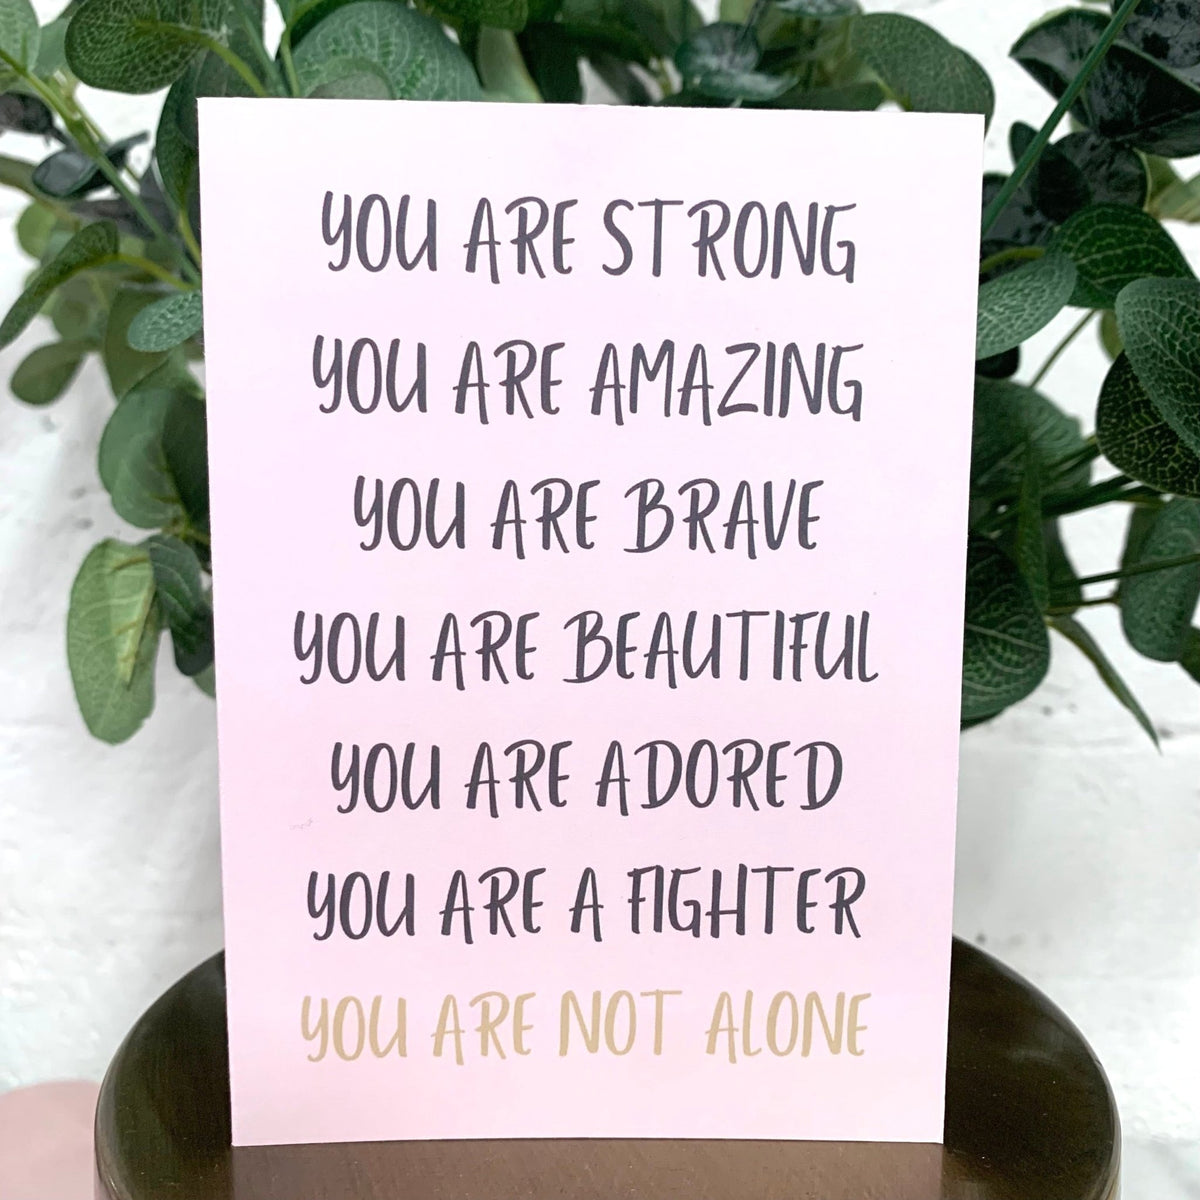 YOU ARE STRONG
YOU ARE AMAZING
YOU ARE BRAVE
YOU ARE BEAUTIFUL
YOU ARE ADORED
YOU ARE A FIGHTER
YOU ARE NOT ALONE